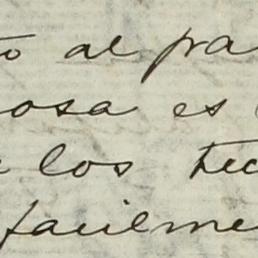 to al pra
osa es
los hec
facilme